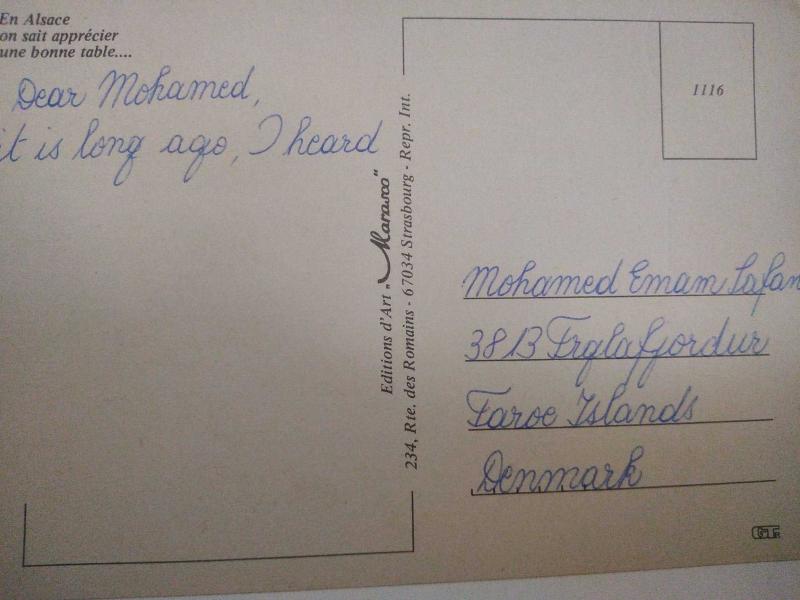 En Alsace
on sait apprécier
une bonne table....
Dear Mohamed,
it is long ago, I heard
Editions d'Art „Marasco"
234, Rte. des Romains - 67034 Strasbourg - Repr. Int.
1116
Mohamed Emam
3813 Frglafjordur
Faroe Islands
Denmark